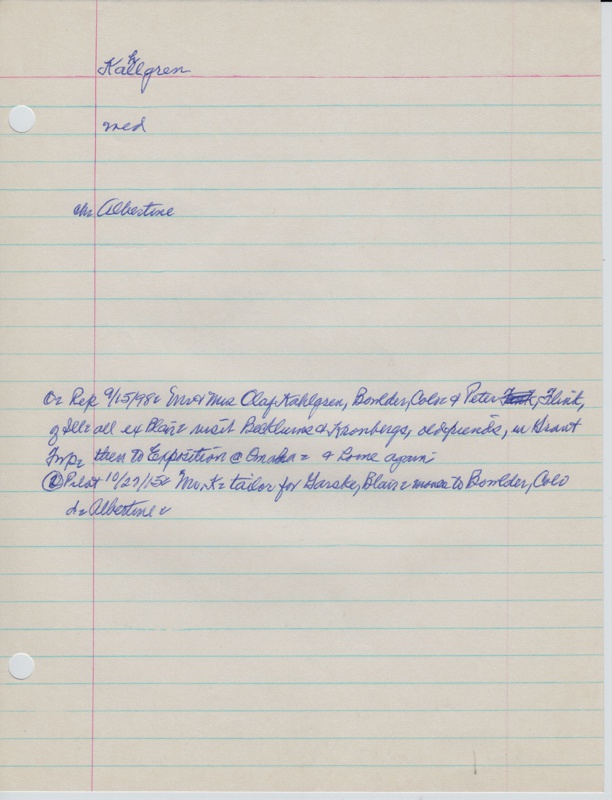 h
Kallgren
med
ch: Albertine
Or Rep 9/15/98: Mr & Mrs Olaf Kahlgren, Boulder, Colo: & Peter Flink,
of Ill: all ex Blair: visit Beeklunds & Kronbergs, old friends, in Grant
Twp: then to Exposition @ Omaha: & home again:
① Pilot 10/27/15: Mr. K: tailor for Garske, Blair: moves to Boulder, Colo
d: Albertine: